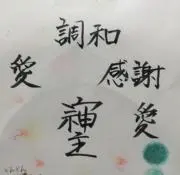 調和
愛
感謝
愛